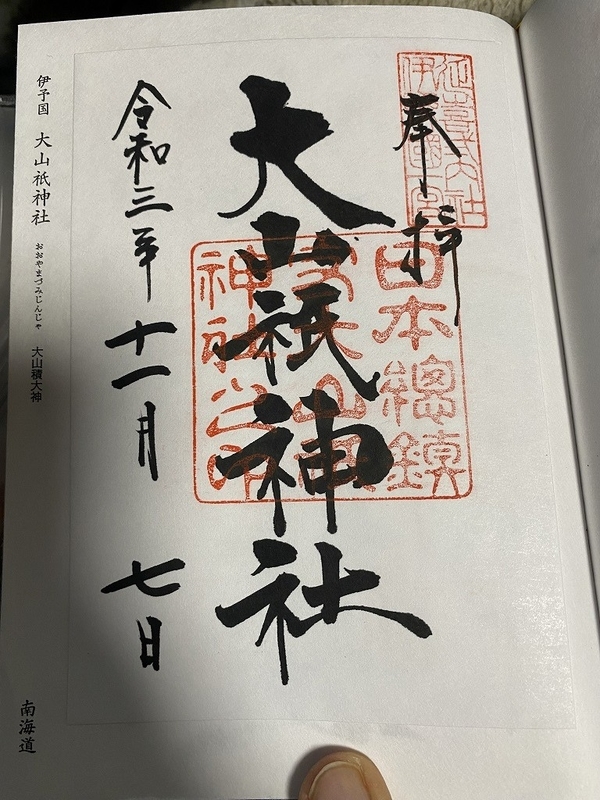 奉拝
延喜式大社
伊豫國一宮
日本總鎮
守大山祇
神社之印
大山祇神社
令和三年十一月七日
伊予国 大山祇神社 おおやまづみじんじゃ 大山積大神
南海道